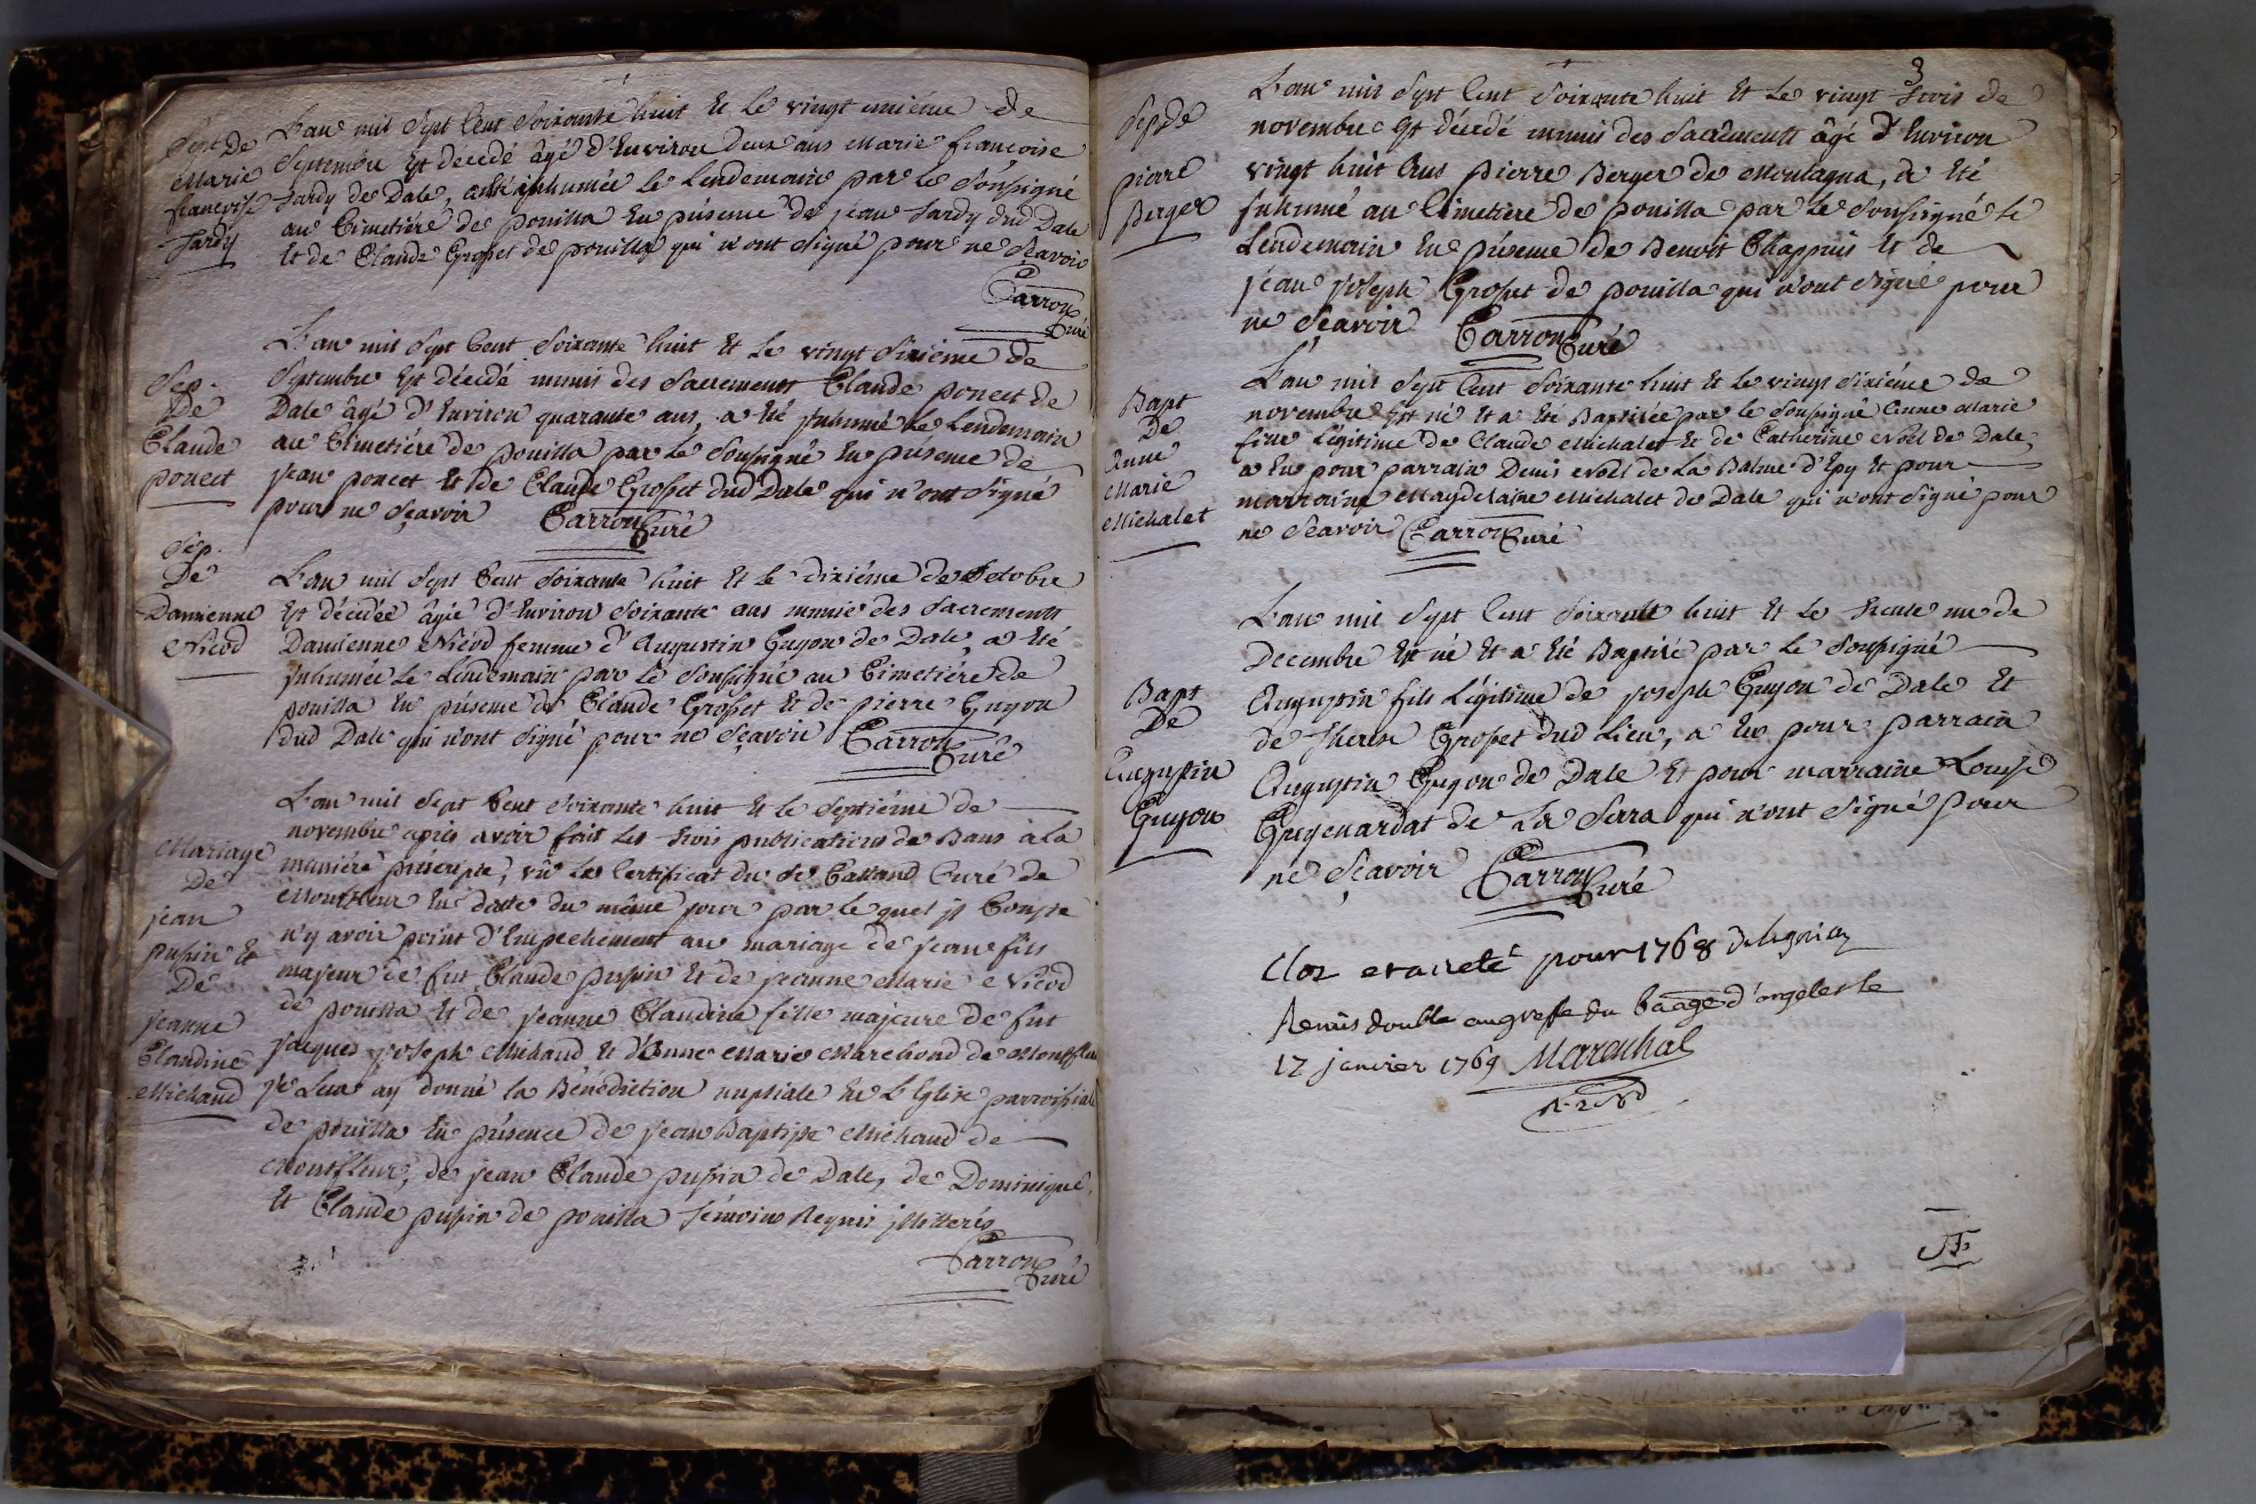 Sept De
Marie
françoise
Tardy
L'an mil Sept Cent Soixante huit Et Le vingt unième de
Septembre Est décédé âgé d'Environ deux ans Marie françoise
Tardy de Dale, a été inhumée Le Lendemain par Le Soussigné
au Cimetiére de pouilla En présence de jean Tardy dud Dale
Et de Claude Grosset de pouilla qui n'ont Signé pour ne Sçavoir
Carron
Curé
Sep.
De
Claude
poncet
L'an mil Sept Cent Soixante huit Et Le vingt Sixième de
Septembre Est décédé munis des Sacrements Claude poncet de
Dale âgé d'Environ quarante ans, a Eté Inhumé Le Lendemain
au Cimetiére de pouilla par Le Soussigné En présence de
jean poncet Et de Claude Grosset dud Dale qui n'ont Signé
pour ne Sçavoir Carron Curé
Sep.
De
Damienne
Nicod
L'an mil Sept Cent Soixante huit Et Le dixiéme de Octobre
Est décédée âgée d'Environ Soixante ans munie des Sacrements
Damienne Nicod femme d'Augustin Guyon de Dale, a Eté
Inhumée Le Lendemain par Le Soussigné au Cimetiére de
pouilla En présence de Claude Grosset Et de pierre Guyon
dud Dale qui n'ont Signé pour ne Sçavoir Carron
Curé
Mariage
De
jean
pupin Et
De
jeanne
Claudine
Michaud
L'an mil Sept Cent Soixante huit Et Le Septiéme de
novembre après avoir fait Les trois publications de Bans à La
maniére prescripte, vû Le Certificat du Sr Calland Curé de
Montfleur En datte du même jour par Le quel jl Conste
n'y avoir point d'Empechement au mariage de jean fils
majeur de fut Claude pupin Et de jeanne Marie Nicod
de pouilla Et de jeanne Claudine fille majeure de fut
jacques joseph Michaud Et d'Anne Marie Marechand de Montfleur
je Leur ay donné la Bénédiction nuptiale En L'Eglise parroissiale
de pouilla En présence de jean Baptiste Michaud de
Montfleur, de jean Claude pupin de Dale, de Dominique
Et Claude pupin de pouilla témoins Requis jllitterés
Carron
Curé
3
Sep De
pierre
Berger
L'an mil Sept Cent Soixante huit Et Le vingt trois de
novembre Est décédé munis des Sacrements âgé d'Environ
vingt huit Ans pierre Berger de Montagna, a Eté
Inhumé au Cimetiére de pouilla par Le Soussigné Le
Lendemain En présence de Benoit Chappuis Et de
jean joseph Grosset de pouilla qui n'ont Signé pour
ne Sçavoir Carron Curé
Bapt
De
Anne
Marie
Michalet
L'an mil Sept Cent Soixante huit Et Le vingt Sixiéme de
novembre Est né Et a Eté Baptisée par le Soussigné Anne Marie
fille Légitime de Claude Michalet Et de Catherine Noël de Dale,
a Eu pour parrain Denis Noël de La Balme d'Epy Et pour
marraine Magdelaine Michalet de Dale qui n'ont Signé pour
ne Sçavoir Carron Curé
Bapt
De
Augustin
Guyon
L'an mil Sept Cent Soixante huit Et Le trente un de
Decembre Est né Et a Eté Baptisé par Le Soussigné
Augustin fils Légitime de joseph Guyon de Dale Et
de Therese Grosset dud Lieu, a Eu pour parrain
Augustin Guyon de Dale Et pour marraine Louise
Guyenardat de La Serra qui n'ont Signé pour
ne Sçavoir Carron Curé
Clos et arreté pour 1768
Remis double au greffe du Baāge d'orgelet le
12 janvier 1769 Marechal